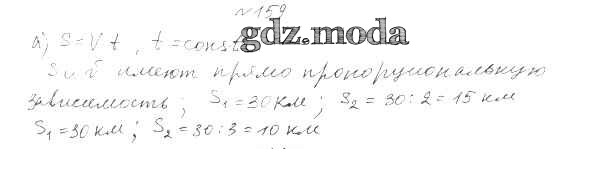 №159
а) S = V t , t = const gdz.moda
S и v̄ имеют прямо пропорциональную
зависимость ; S₁ = 30 км ; S₂ = 30 : 2 = 15 км
S₁ = 30 км ; S₂ = 30 : 3 = 10 км